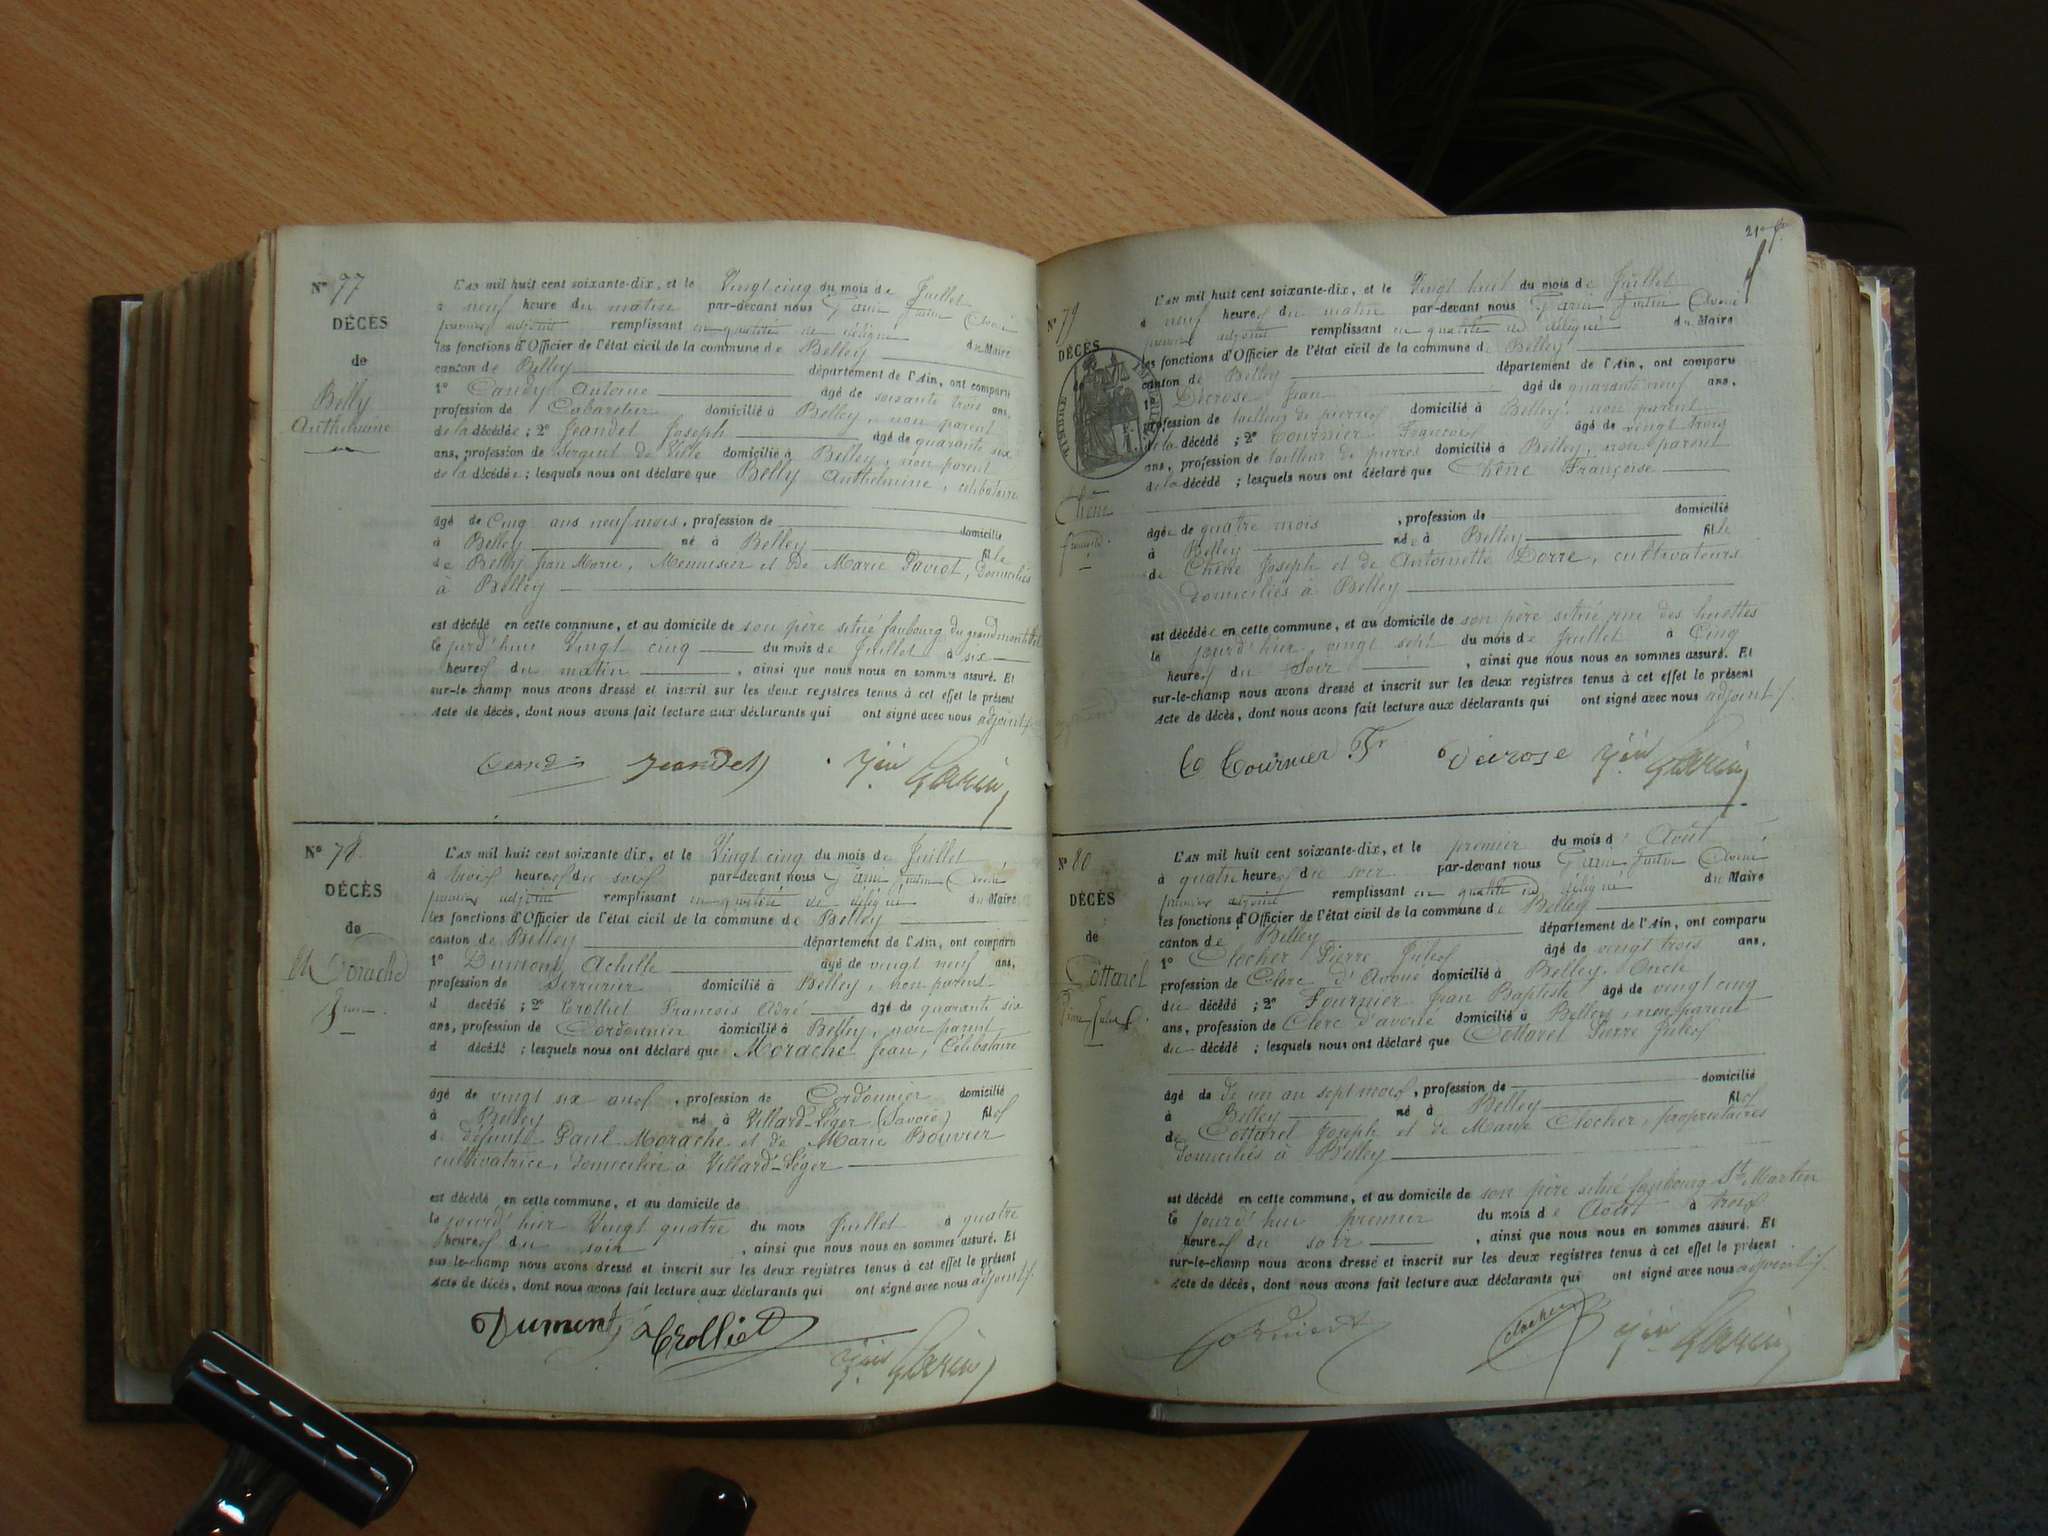 N° 77
DÉCÈS
de
Belly
Anthelmine
L'AN mil huit cent soixante-dix, et le Vingt cinq du mois de Juillet
à neuf heure du matin par-devant nous Garin Justin Avoué
premier adjoint remplissant en qualité de délégué du Maire
les fonctions d'Officier de l'état civil de la commune de Belley
canton de Belley département de l'Ain, ont comparu
1° Candy Antoine âgé de soixante trois ans,
profession de Cabaretier domicilié à Belley, non parent
de la décédée ; 2° Jeandet Joseph âgé de quarante six
ans, profession de Sergent de Ville domicilié à Belley, non parent
de la décédée ; lesquels nous ont déclaré que Belly Anthelmine, célibataire
âgé de Cinq ans neuf mois, profession de domicilié
à Belley né à Belley fille
de Belly Jean Marie, Menuisier et de Marie Paviot, domiciliés
à Belley
est décédé en cette commune, et au domicile de son père situé faubourg du grand
le jourd'hui Vingt cinq du mois de Juillet à six
heures du matin , ainsi que nous nous en sommes assuré. Et
sur-le-champ nous avons dressé et inscrit sur les deux registres tenus à cet effet le présent
Acte de décès, dont nous avons fait lecture aux déclarants qui ont signé avec nous adjoint
Jeandet Jin Garin
N° 78
DÉCÈS
de
Morache
Jean
L'AN mil huit cent soixante dix, et le Vingt cinq du mois de Juillet
à heures du soir par-devant nous Garin Justin Avoué
premier adjoint remplissant en qualité de délégué du Maire
les fonctions d'Officier de l'état civil de la commune de Belley
canton de Belley département de l'Ain, ont comparu
1° Dumont Achille âgé de vingt neuf ans,
profession de Serrurier domicilié à Belley, non parent
d décédé ; 2° Trolliet François Adré âgé de quarante six
ans, profession de Cordonnier domicilié à Belley, non parent
d décédé ; lesquels nous ont déclaré que Morache Jean, Célibataire
âgé de vingt six ans , profession de Cordonnier domicilié
à Belley né à Villard-Léger (Savoie) fils
de défunt Paul Morache et de Marie Bouvier
cultivatrice, domiciliée à Villard-Léger
est décédé en cette commune, et au domicile de
le jourd'hier Vingt quatre du mois Juillet à quatre
heures du soir , ainsi que nous nous en sommes assuré. Et
sur-le-champ nous avons dressé et inscrit sur les deux registres tenus à cet effet le présent
Acte de décès, dont nous avons fait lecture aux déclarants qui ont signé avec nous adjoint
Dumont, A Trolliet
Jin Garin
21
N° 79
DÉCÈS
TIMBRE
Chêne
L'AN mil huit cent soixante-dix, et le Vingt huit du mois de Juillet
à neuf heures du matin par-devant nous Garin Justin Avoué
premier adjoint remplissant en qualité de délégué du Maire
les fonctions d'Officier de l'état civil de la commune de Belley
canton de Belley département de l'Ain, ont comparu
1° Décrose Jean âgé de quarante neuf ans,
profession de tailleur de pierres domicilié à Belley, non parent
de la décédé ; 2° Tournier François âgé de vingt trois
ans, profession de tailleur de pierres domicilié à Belley, non parent
de la décédé ; lesquels nous ont déclaré que Chêne Françoise
âgée de quatre mois , profession de domicilié
à Belley née à Belley fille
de Chêne Joseph et de Antoinette Dorre, cultivateurs
domiciliés à Belley
est décédée en cette commune, et au domicile de son père situé rue des huettes
le jourd'hier, vingt sept du mois de Juillet à Cinq
heures du Soir , ainsi que nous nous en sommes assuré. Et
sur-le-champ nous avons dressé et inscrit sur les deux registres tenus à cet effet le présent
Acte de décès, dont nous avons fait lecture aux déclarants qui ont signé avec nous adjoint
Tournier Fr Décrose Jin Garin
N° 80
DÉCÈS
de
Cottarel
Pierre Jules
L'AN mil huit cent soixante-dix, et le premier du mois d'Août
à quatre heures du soir par-devant nous Garin Justin Avoué
premier adjoint remplissant en qualité de délégué du Maire
les fonctions d'Officier de l'état civil de la commune de Belley
canton de Belley département de l'Ain, ont comparu
1° Clocher Pierre Jules âgé de vingt trois ans,
profession de Clerc d'Avoué domicilié à Belley, Oncle
du décédé ; 2° Fournier Jean Baptiste âgé de vingt cinq
ans, profession de Clerc d'avoué domicilié à Belley, non parent
du décédé ; lesquels nous ont déclaré que Cottarel Pierre Jules
âgé de de un an sept mois, profession de domicilié
à Belley né à Belley fils
de Cottarel Joseph et de Marie Clocher, propriétaires
domiciliés à Belley
est décédé en cette commune, et au domicile de son père situé faubourg St Martin
le jourd'hui premier du mois de Août à trois
heures du soir , ainsi que nous nous en sommes assuré. Et
sur-le-champ nous avons dressé et inscrit sur les deux registres tenus à cet effet le présent
Acte de décès, dont nous avons fait lecture aux déclarants qui ont signé avec nous adjoint
Clocher Jin Garin